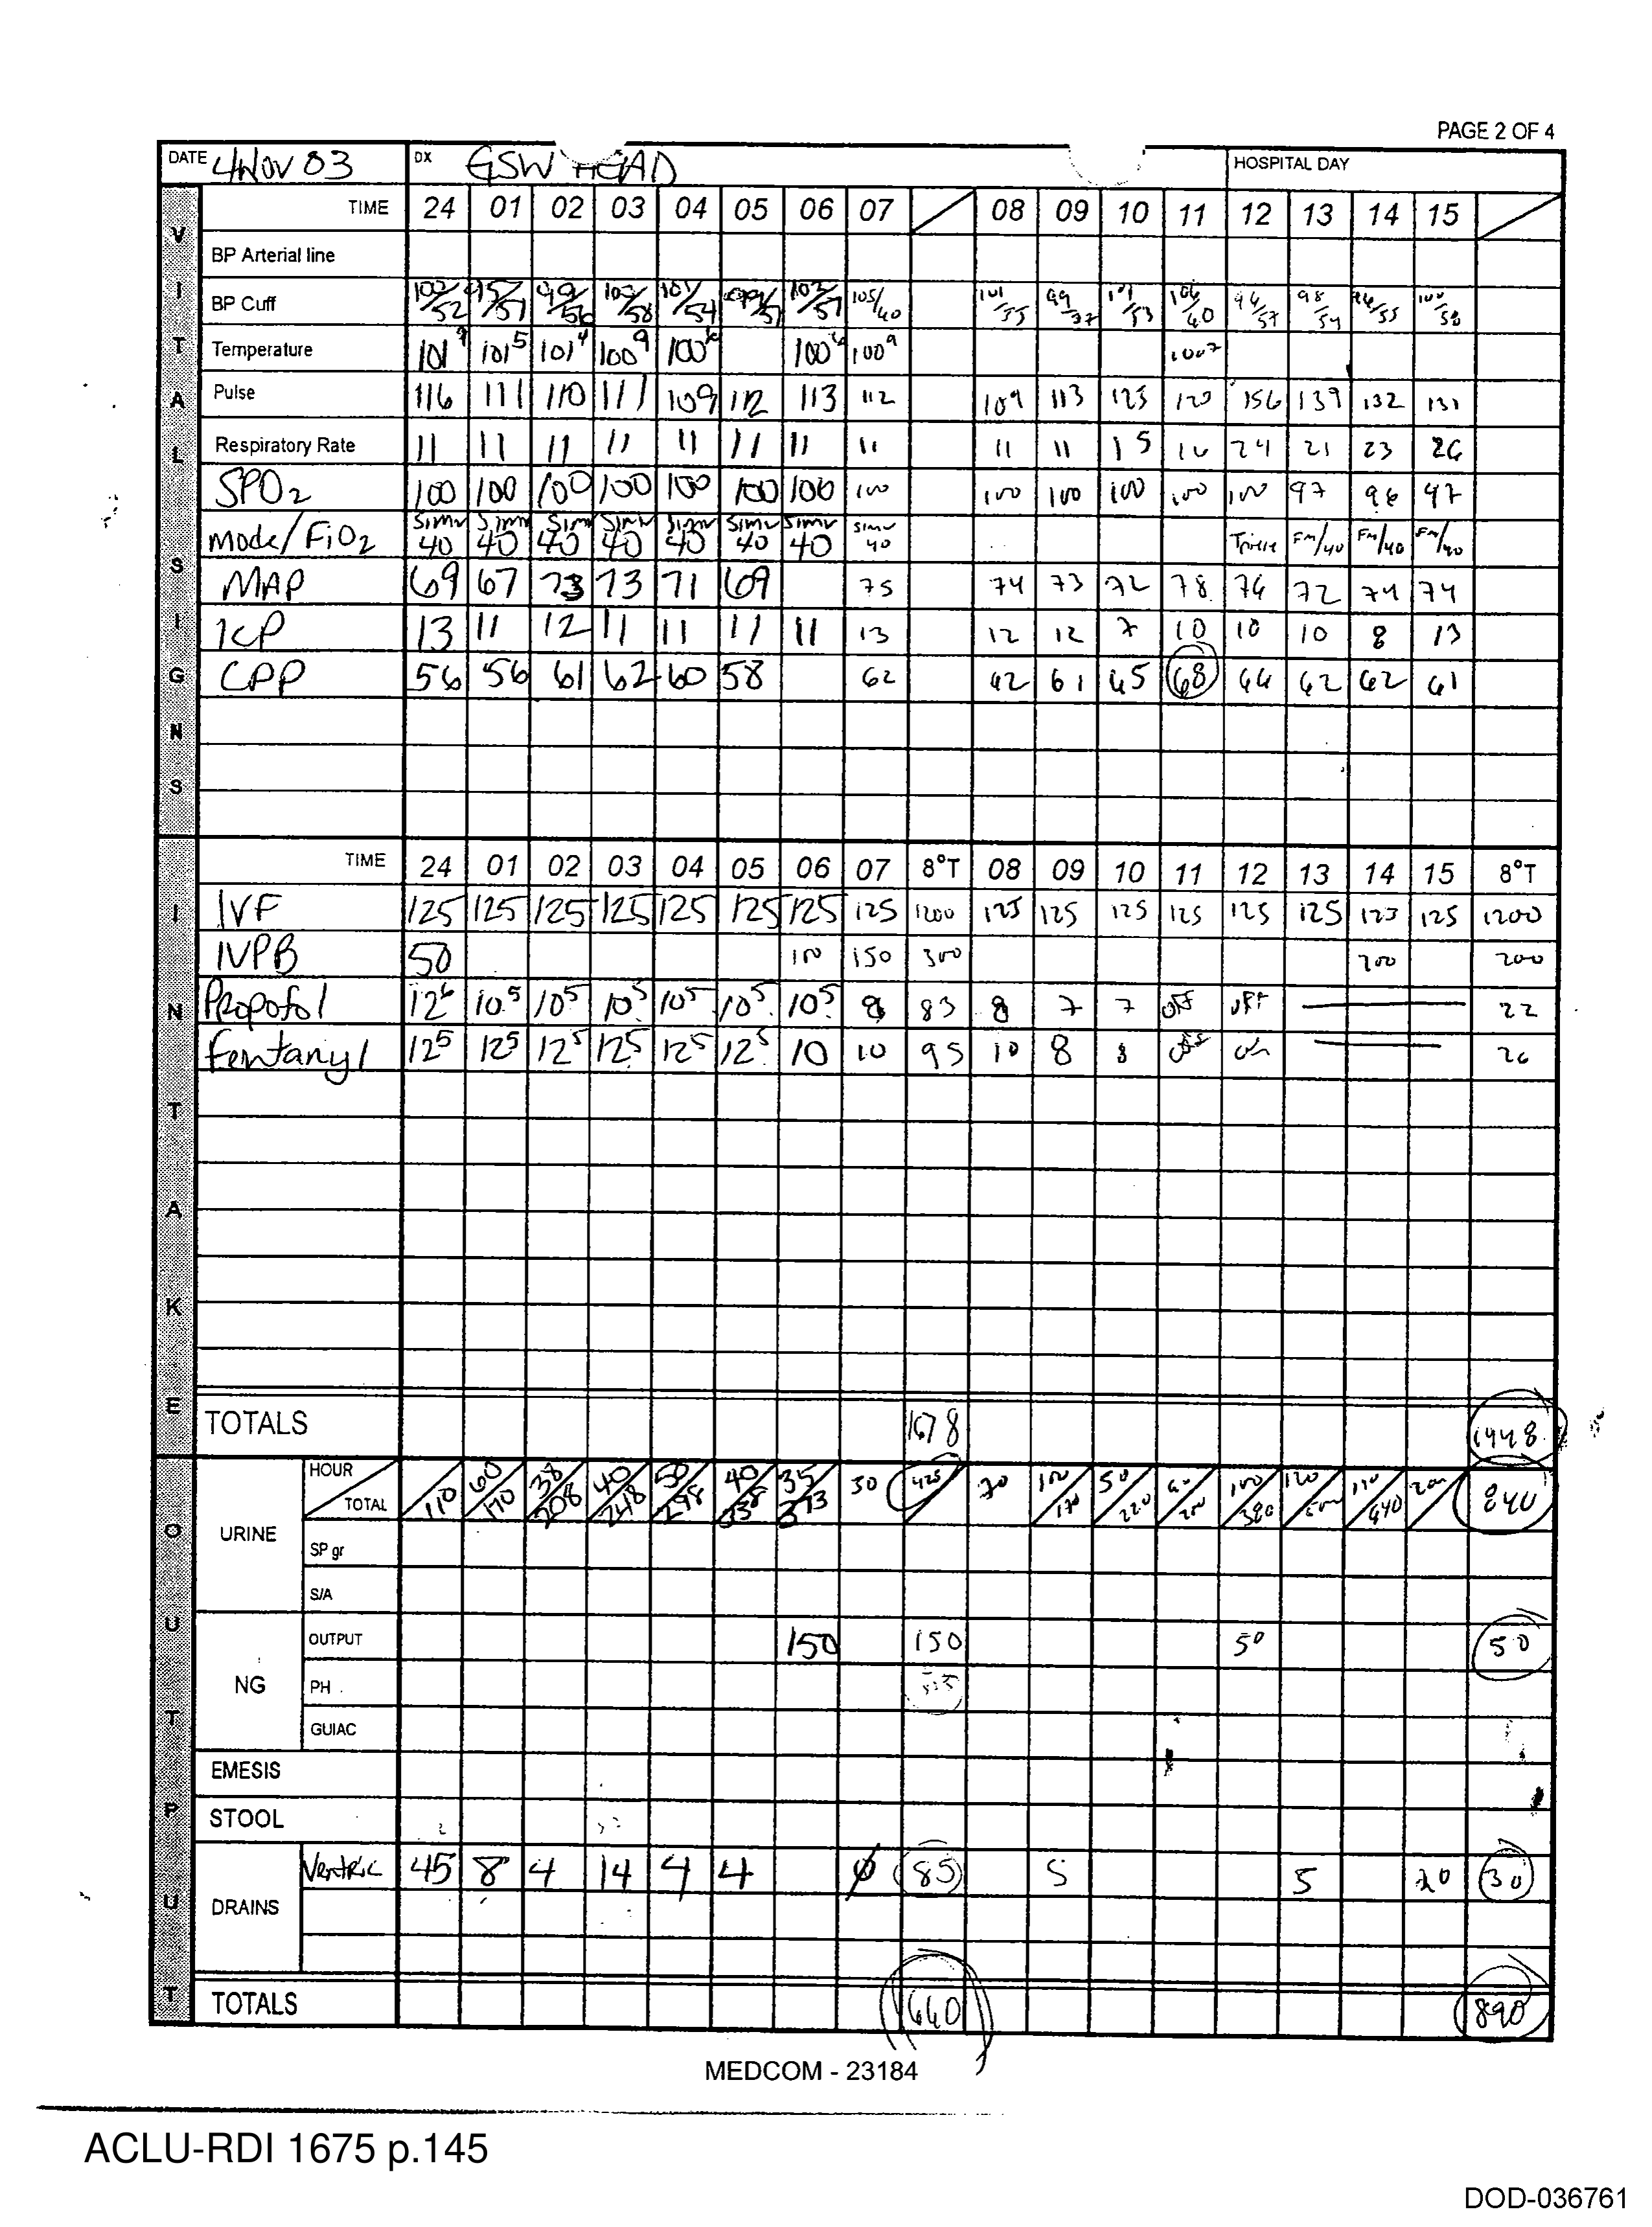 PAGE 2 OF 4
DATE 4 NOV 03 DX GSW HEAD HOSPITAL DAY
VITAL SIGNS
TIME 24 01 02 03 04 05 06 07 08 09 10 11 12 13 14 15
BP Arterial line
BP Cuff 102/52 95/51 99/56 103/58 101/54 102/57 105/60 101/55 101/53 106/60 94/57 98/54 96/55 100/58
Temperature 101⁹ 101⁵ 101⁴ 100⁹ 100⁶ 100⁶ 100⁹ 100⁷
Pulse 116 111 110 111 109 112 113 112 109 113 123 120 156 139 132 131
Respiratory Rate 11 11 11 11 11 11 11 11 11 11 15 16 24 21 23 26
SPO₂ 100 100 100 100 100 100 100 100 100 100 100 100 100 97 96 97
Mode/FiO₂ SIMV 40 SIMV 40 SIMV 40 SIMV 40 SIMV 40 SIMV 40 SIMV 40 SIMV 40 FM/40 FM/40 FM/40
MAP 69 67 73 73 71 69 75 74 73 72 78 76 72 74 74
ICP 13 11 12 11 11 11 11 13 12 12 7 10 10 10 8 13
CPP 56 56 61 62 60 58 62 62 61 65 68 66 62 62 61
INTAKE
TIME 24 01 02 03 04 05 06 07 8°T 08 09 10 11 12 13 14 15 8°T
IVF 125 125 125 125 125 125 125 125 1200 125 125 125 125 125 125 125 125 1200
IVPB 50 100 150 300 200 200
Propofol 12⁶ 10⁵ 10⁵ 10⁵ 10⁵ 10⁵ 10⁵ 8 83 8 7 7 OFF OFF 22
Fentanyl 12⁵ 12⁵ 12⁵ 12⁵ 12⁵ 12⁵ 10 10 95 10 8 8 OFF 26
TOTALS 1678 1448
OUTPUT
URINE HOUR/TOTAL /110 60/170 38/208 40/248 50/298 40/338 35/373 30 425 70 100/170 50/220 100/380 120/500 110/640 200/ 840
SP gr
S/A
NG OUTPUT 150 150 50 50
PH
GUIAC
EMESIS
STOOL
DRAINS Ventric 45 8 4 14 4 4 ∅ 85 5 5 20 30
TOTALS 660 890
MEDCOM - 23184
ACLU-RDI 1675 p.145
DOD-036761